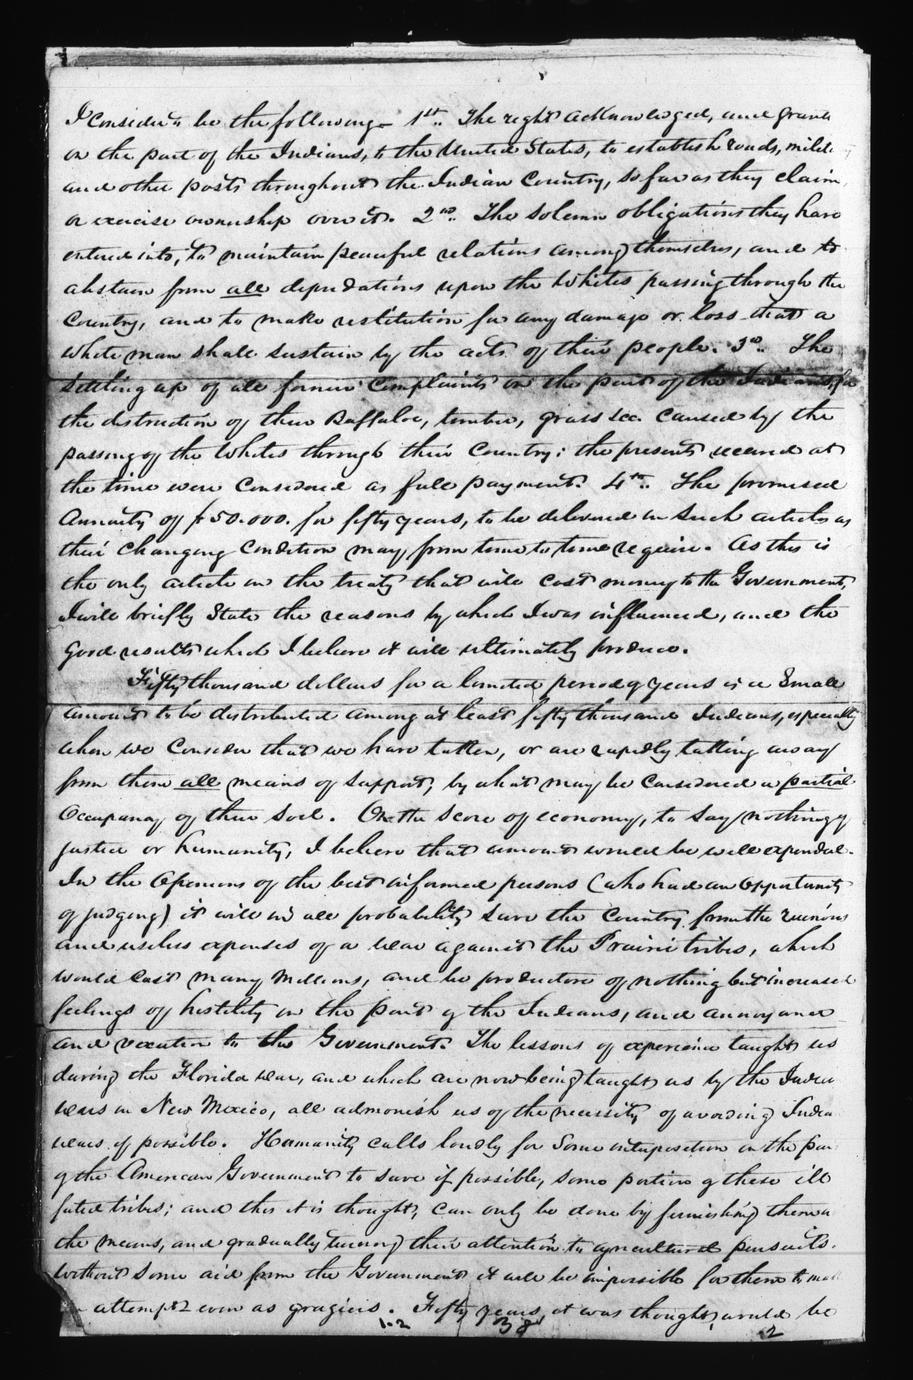 I consider to be the following – 1st. The right acknowledged, and granted
on the part of the Indians, to the United States, to establish roads, military
and other posts throughout the Indian Country, so far as they claim,
or exercise ownership over it. 2nd. The solemn obligations they have
entered into, to maintain peaceful relations among themselves, and to
abstain from all depredations upon the Whites passing through the
Country, and to make restitution for any damage or loss that a
White man shall sustain by the acts of their people. 3rd. The
Settling up of all former complaints on the part of the Indians, for
the distruction of their Buffaloe, timber, grass &c. caused by the
passing of the Whites through their Country; the presents received at
the time were considered as full payment. 4th. The promised
Annuity of $50.000. for fifty years, to be delivered in such articles as
their changing condition may from time to time require. As this is
the only article in the treaty that will cost money to the Government,
I will briefly State the reasons by which I was influenced, and the
good results which I believe it will ultimately produce.
Fifty thousand dollars for a limited period of years is a Small
amount to be distributed among at least fifty thousand Indians, especially
when we consider that we have taken, or are rapidly taking away
from them all means of support, by what may be considered a partial
Occupancy of their soil. On the score of economy, to say nothing of
justice or humanity, I believe that amount would be well expended.
In the Opinions of the best informed persons (who had an opportunity
of judging) it will in all probability save the country from the ruinous
and useless expenses of a war against the Prairie tribes, which
would cost many Millions, and be productive of nothing but increased
feelings of hostility on the part of the Indians, and annoyance
and vexation to the Government. The lessons of experience taught us
during the Florida war, and which are now being taught us by the Indian
wars in New Mexico, all admonish us of the necessity of avoiding Indian
wars if possible. Humanity calls loudly for Some interposition on the part
of the American Government to save if possible, some portion of these ill
fated tribes; and this it is thought, can only be done by furnishing them
the means, and gradually turning their attention to agricultural pursuits.
Without some aid from the Government it will be impossible for them to make
an attempt even as graziers. Fifty years it was thought, would be
1-2 38 2